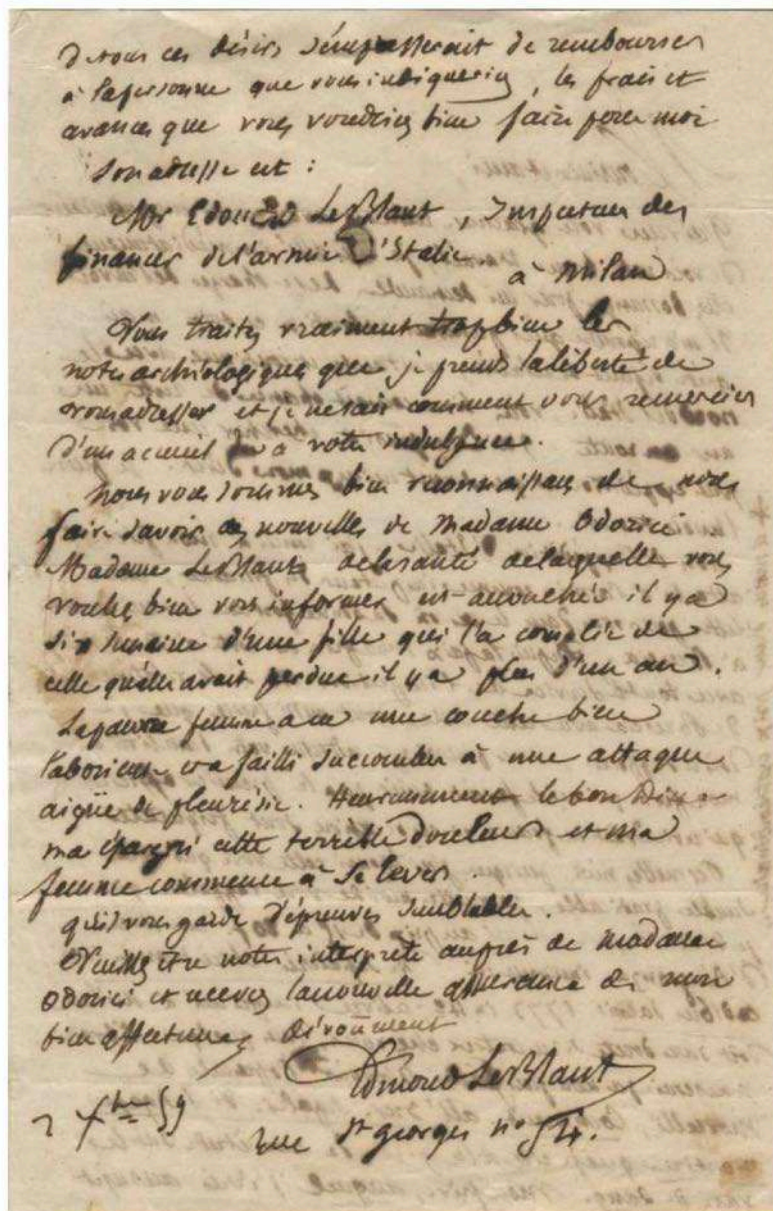 de tous ces désirs s'empresserait de rembourser
à la personne que vous indiqueriez, les frais et
avances que vous voudriez bien faire pour moi
son adresse est :
Mr Edouard Le Blant, Inspecteur des
finances de l'armée d'Italie.
à Milan
Vous traitez vraiment trop bien les
notes archéologiques que je prends la liberté de
vous adresser et je ne sais comment vous remercier
d'un accueil dû à votre indulgence.
Nous vous sommes bien reconnaissans de nous
faire savoir des nouvelles de Madame Odorici
Madame Le Blant de la santé de laquelle vous
voulez bien vous informer est accouchée il y a
six semaines d'une fille qui l'a consolée de
celle qu'elle avait perdue il y a plus d'un an.
La pauvre femme a eu une couche bien
laborieuse et a failli succomber à une attaque
aigüe de pleurésie. Heureusement le bon Dieu
m'a épargné cette terrible douleur et ma
femme commence à se lever.
qu'il vous garde d'épreuves semblables.
Veuillez être notre interprète auprès de Madame
Odorici et recevez la nouvelle assurance de mon
bien affectueux dévoûment
Edmond Le Blant
2 Xbre 59
rue St georges no 54.